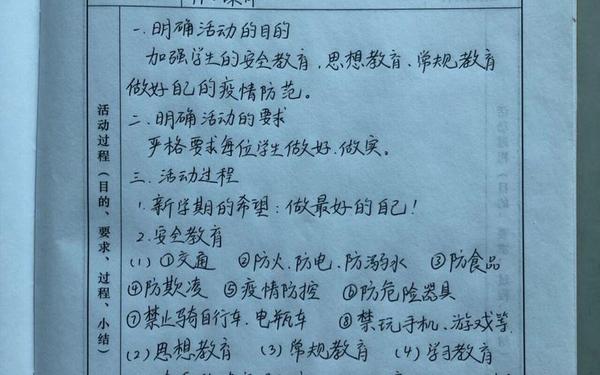 一.明确活动的目的
加强学生的安全教育、思想教育、常规教育
做好自己的疫情防范。
二.明确活动的要求
严格要求每位学生做好.做实。
三.活动过程
1.新学期的希望:做最好的自己!
2.安全教育
(1)①交通 ②防火.防电.防溺水 ③防食品
④防欺凌 ⑤疫情防控 ⑥防危险器具
⑦禁止骑自行车.电瓶车 ⑧禁玩手机、游戏等.
(2)思想教育 (3)常规教育 (4)学习教育
活动过程(目的、要求、过程、小结)